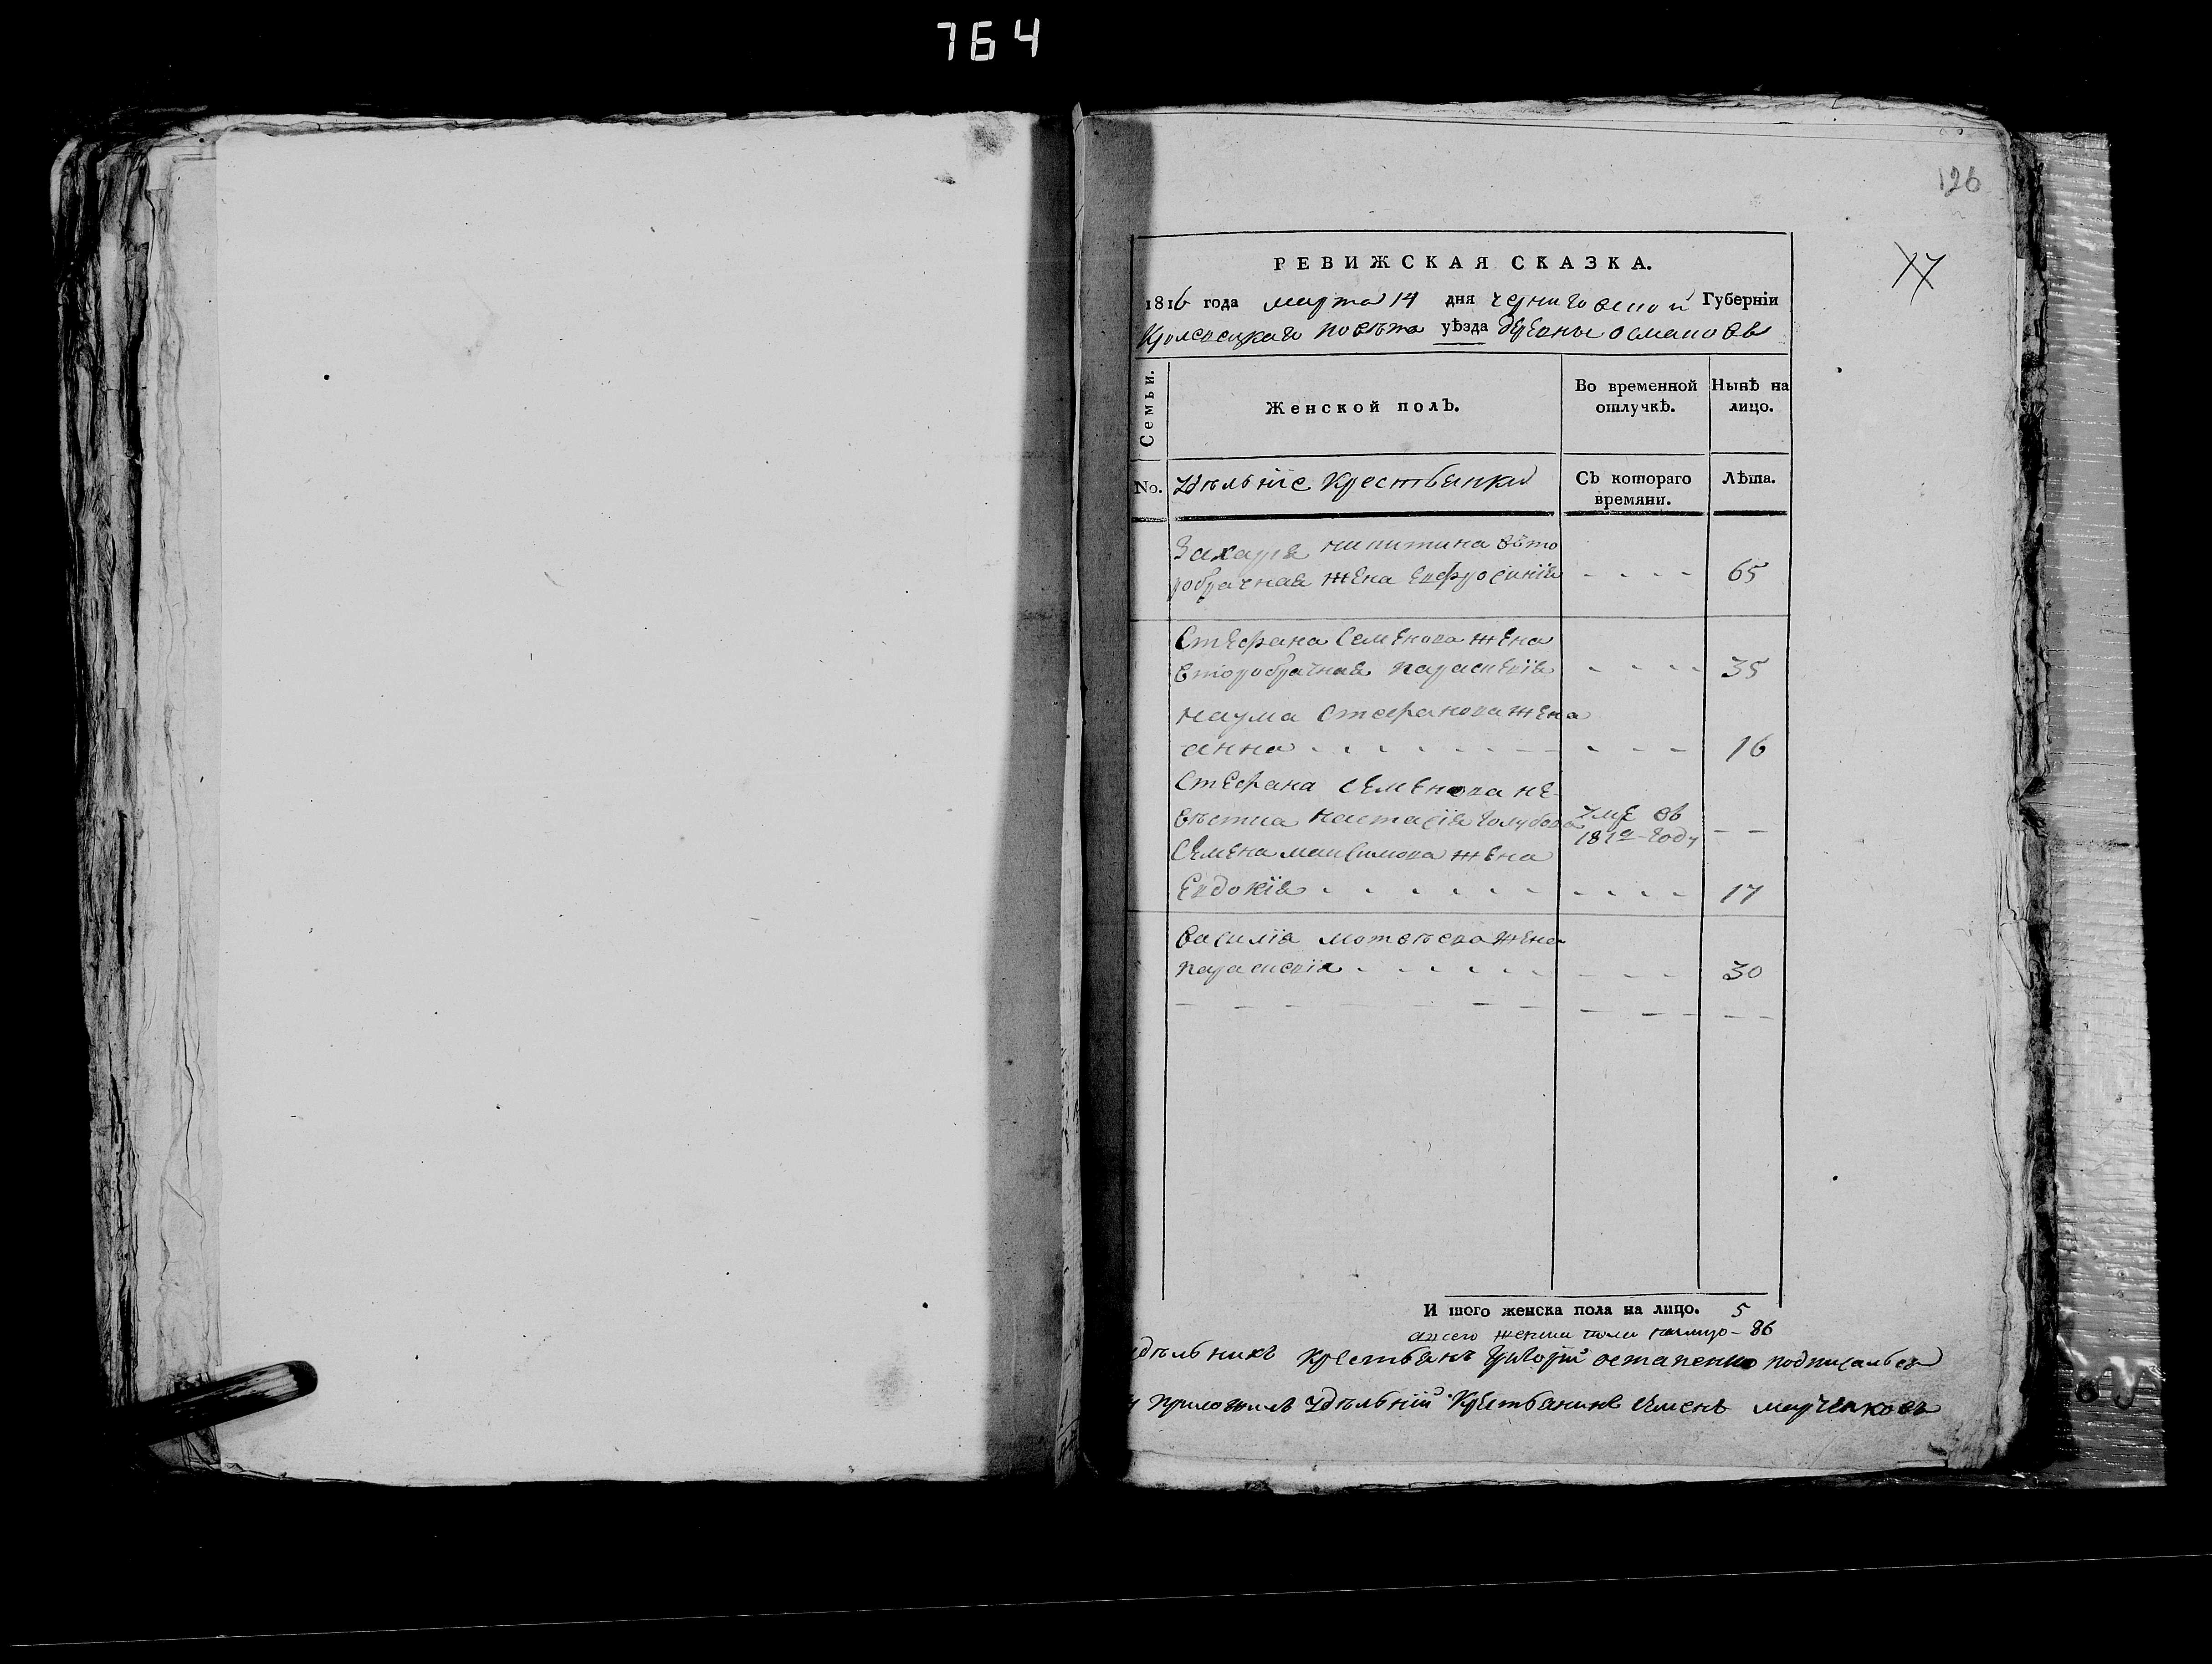 764
126
17
РЕВИЖСКАЯ СКАЗКА.
1816 года марта 14 дня черниговской Губерніи
Кролевецкаго повѣта уѣзда деревны османовъ
Семьи.
Женской полъ.
Во временной отлучкѣ.
Нынѣ на лицо.
No.
Удѣльніе крестьянки
Съ котораго времяни.
Лѣта.
Захаря никитина вто
робрачная жена евфросинія - - - - 65
Стефана Семенова жена
второбрачная параскевія - - - - 35
наума Стефанова жена
анна - - - - 16
Стефана Семенова не-
вѣстка настасія голубова
умре въ 1812 году - -
Семена максимова жена
Евдокія - - - - 17
василія матвѣева жена
параскевія - - - - 30
И того женска пола на лицо. 5
а всего женска пола налицо - 86
крестьянъ григорій остапенко подписался
приложилъ удѣльній крестьянинъ семенъ марченковъ